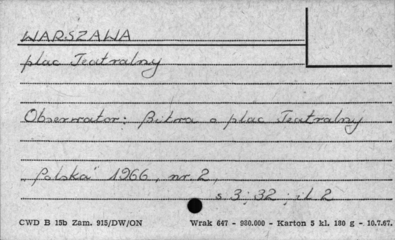 WARSZAWA
plac Teatralny
Obserwator: Bitwa o plac Teatralny
„Polska" 1966, nr. 2,
s. 3; 32; il. 2
CWD B 15b Zam. 915/DW/ON Wrak 647 - 980.000 - Karton 5 kl. 180 g - 10.7.67.